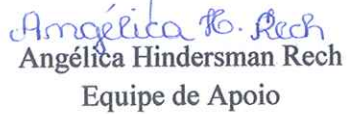 Angélica H. Rech
Angélica Hindersman Rech
Equipe de Apoio